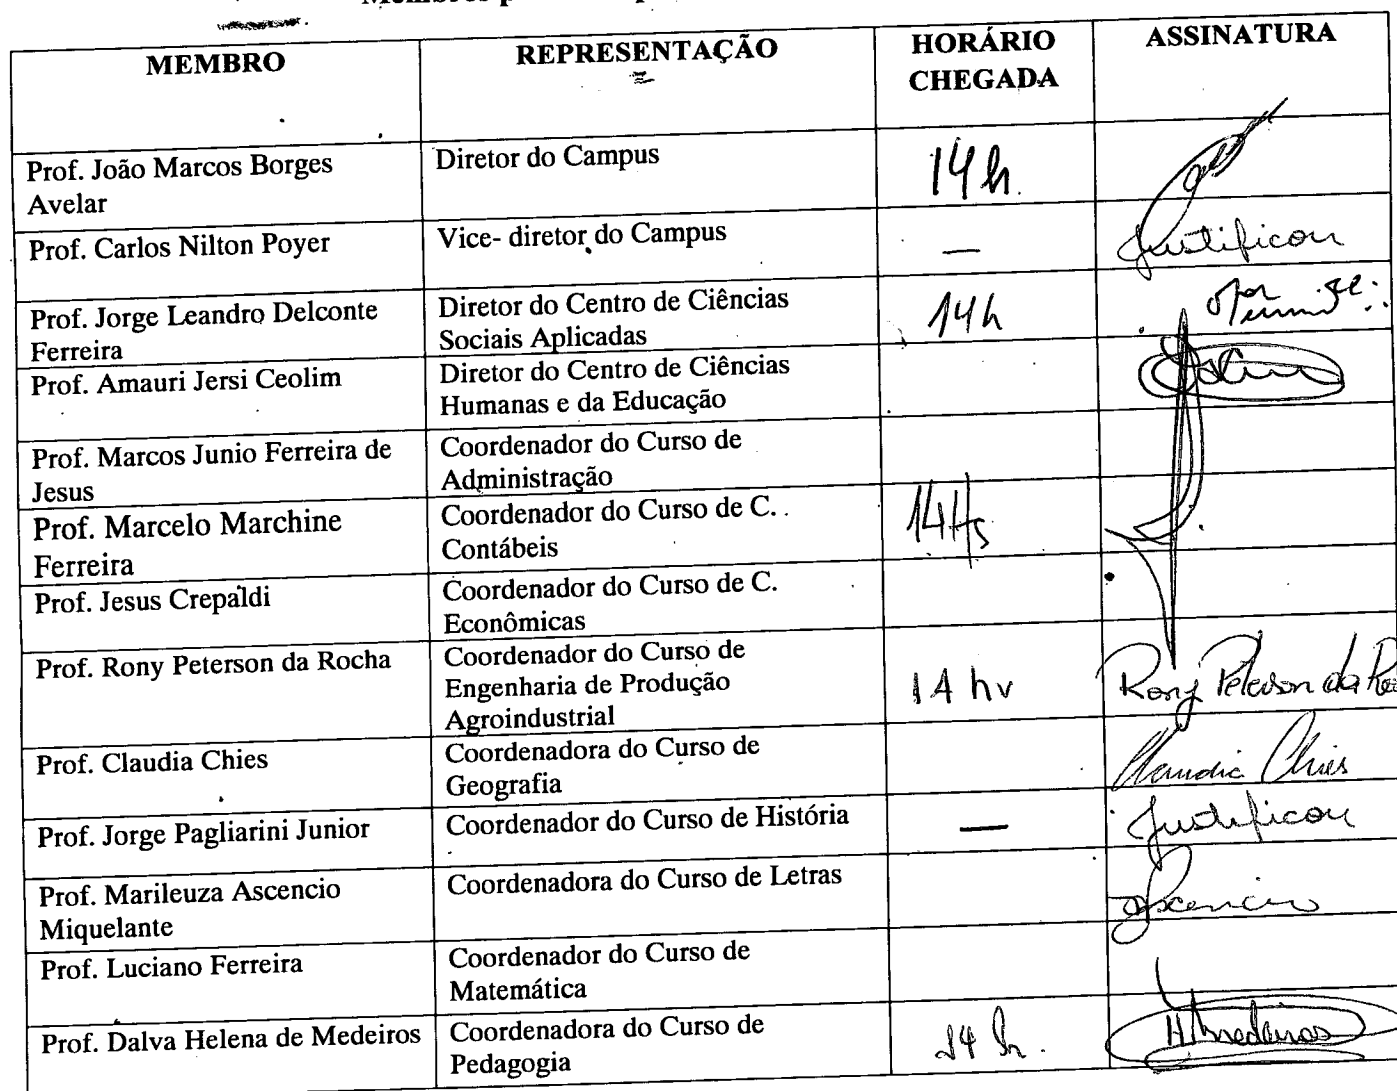 MEMBRO REPRESENTAÇÃO HORÁRIO ASSINATURA
CHEGADA
Prof. João Marcos Borges Diretor do Campus 14h.
Avelar
Prof. Carlos Nilton Poyer Vice- diretor do Campus — Justificou
Prof. Jorge Leandro Delconte Diretor do Centro de Ciências 14h
Ferreira Sociais Aplicadas
Prof. Amauri Jersi Ceolim Diretor do Centro de Ciências
Humanas e da Educação
Prof. Marcos Junio Ferreira de Coordenador do Curso de
Jesus Administração
Prof. Marcelo Marchine Coordenador do Curso de C. 14Hs
Ferreira Contábeis
Prof. Jesus Crepaldi Coordenador do Curso de C.
Econômicas
Prof. Rony Peterson da Rocha Coordenador do Curso de
Engenharia de Produção 14 hr Rony Peterson da
Agroindustrial
Prof. Claudia Chies Coordenadora do Curso de Claudia Chies
Geografia
Prof. Jorge Pagliarini Junior Coordenador do Curso de História — Justificou
Prof. Marileuza Ascencio Coordenadora do Curso de Letras Ascencio
Miquelante
Prof. Luciano Ferreira Coordenador do Curso de
Matemática
Prof. Dalva Helena de Medeiros Coordenadora do Curso de 14 h. HMedeiros
Pedagogia